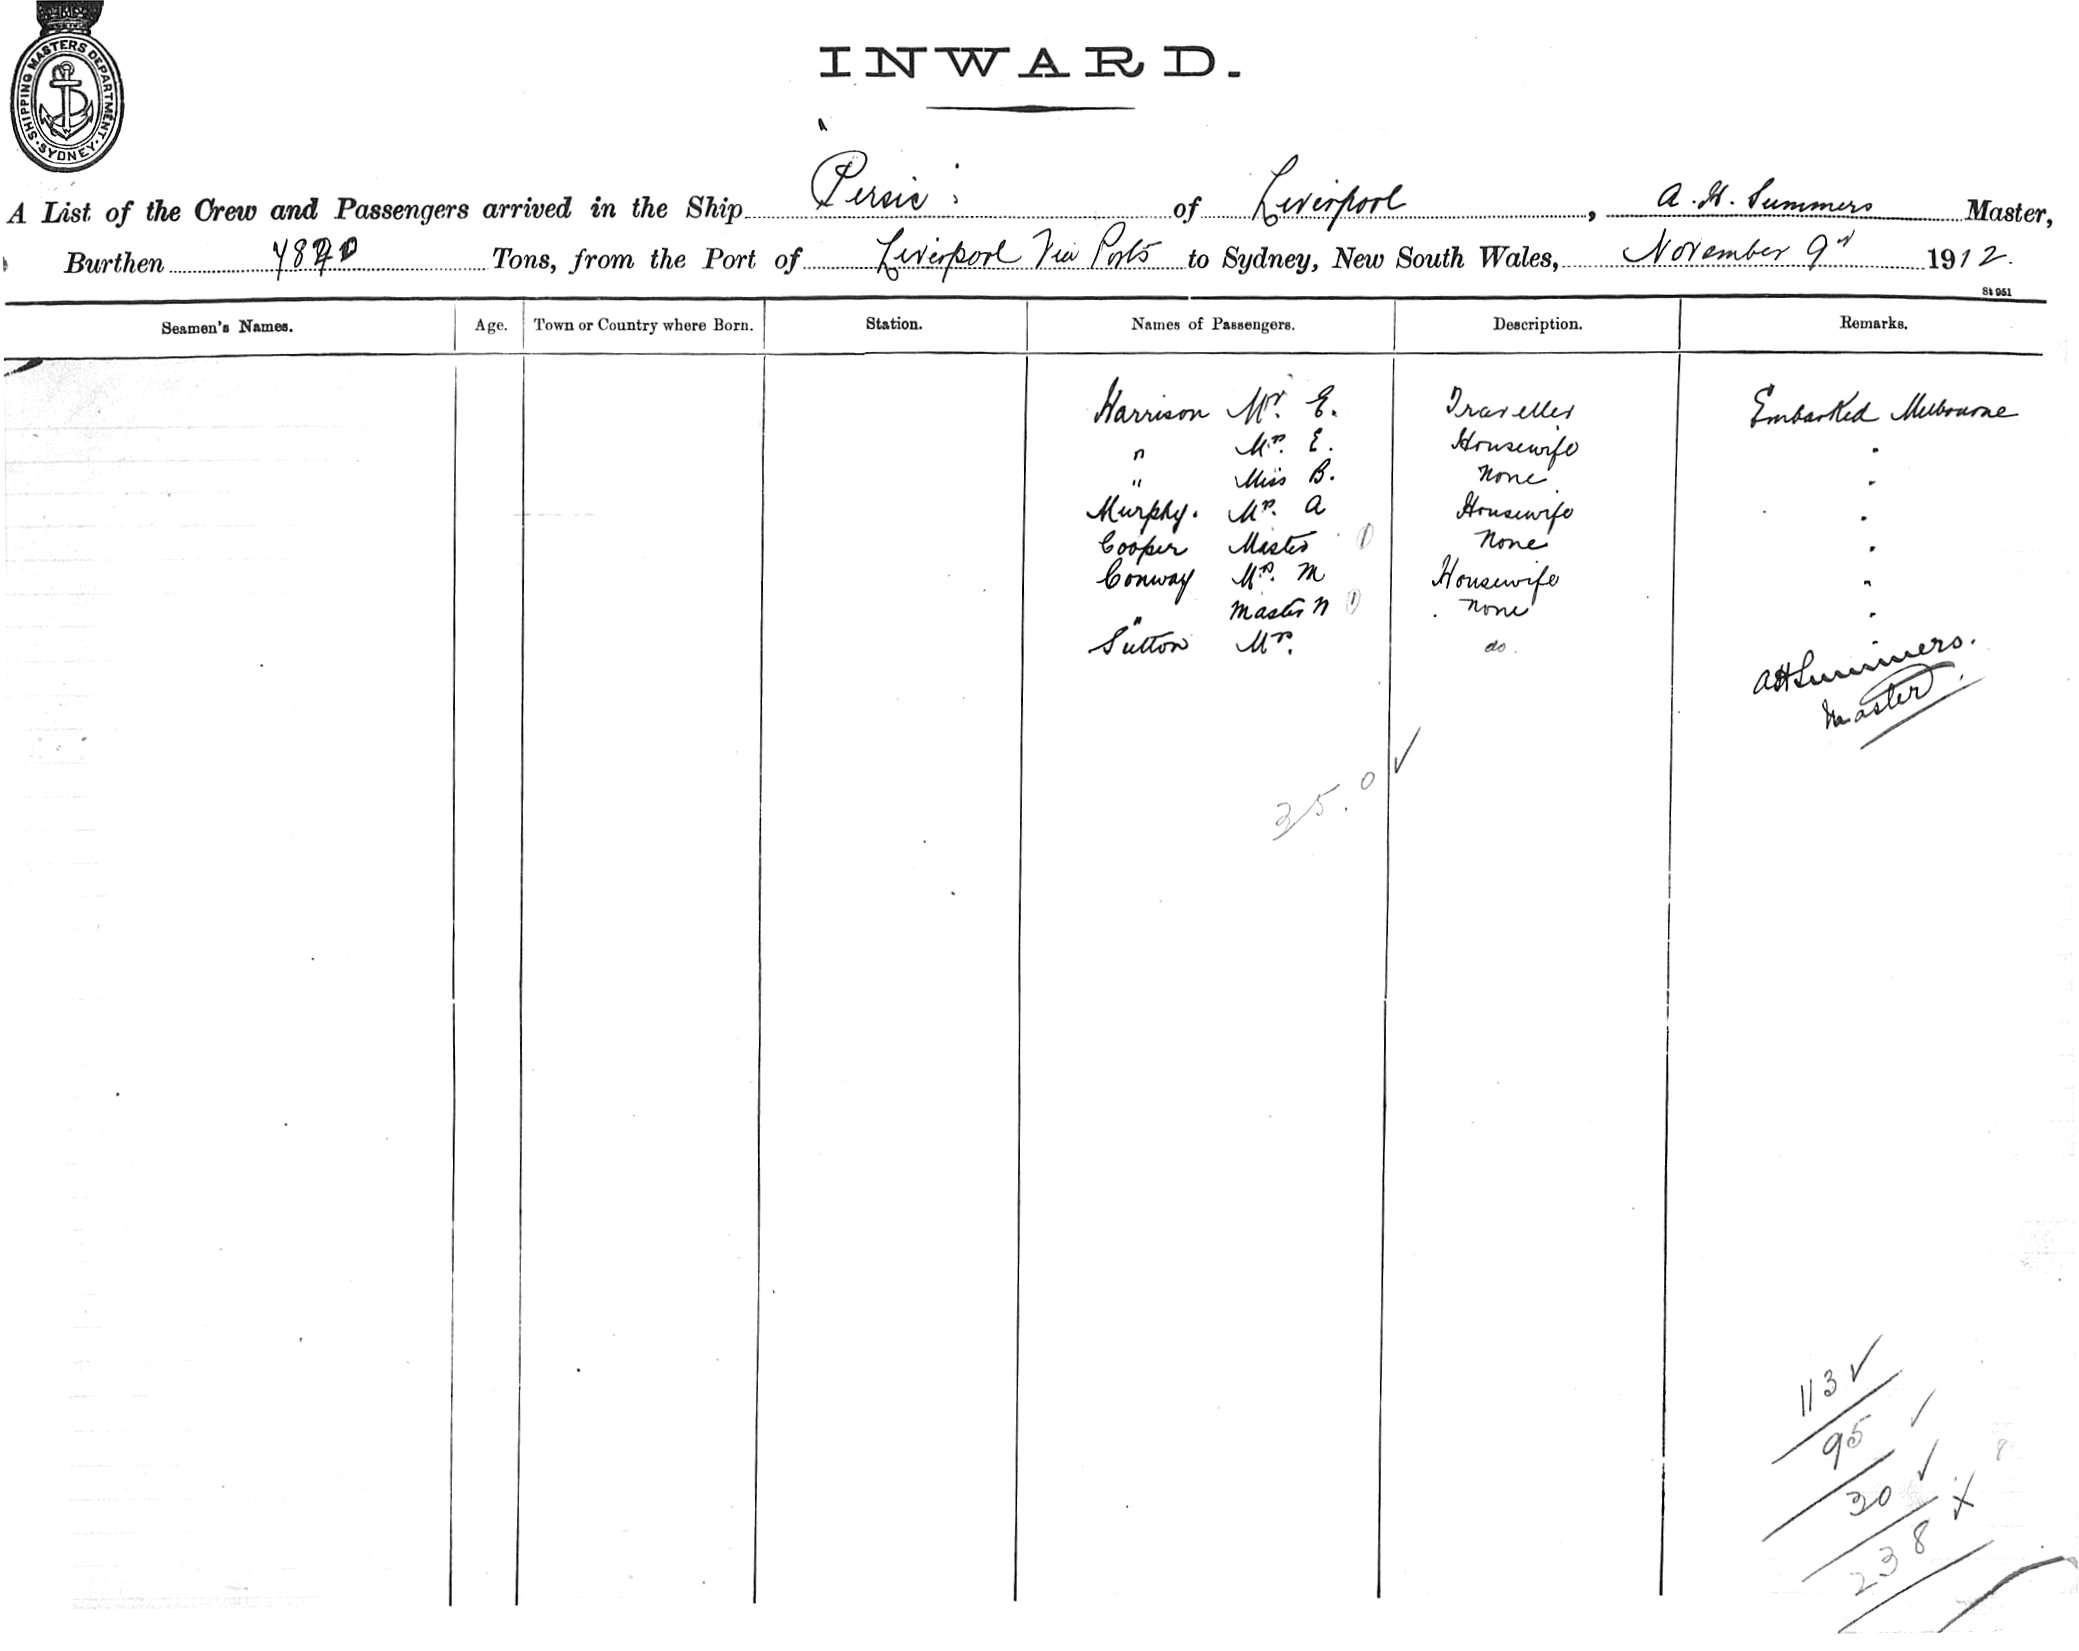 SHIPPING MASTERS DEPARTMENT · SYDNEY ·
INWARD.
A List of the Crew and Passengers arrived in the Ship "Persic" of Liverpool, A. H. Summers Master,
Burthen Tons, from the Port of Liverpool Via Ports to Sydney, New South Wales, November 9th 1912.
St 951
Seamen's Names. Age. Town or Country where Born. Station. Names of Passengers. Description. Remarks.
Harrison Mr. E. Traveller Embarked Melbourne
" Mrs. E. Housewife "
" Miss B. None "
Murphy. Mrs. A Housewife "
Cooper Master (1) None "
Conway Mrs. M Housewife "
" Master N (1) None "
Sutton Mrs. do.
AHSummers.
Master.
35.0 ✓
113 ✓
95 ✓
30 ✓
238 X
8